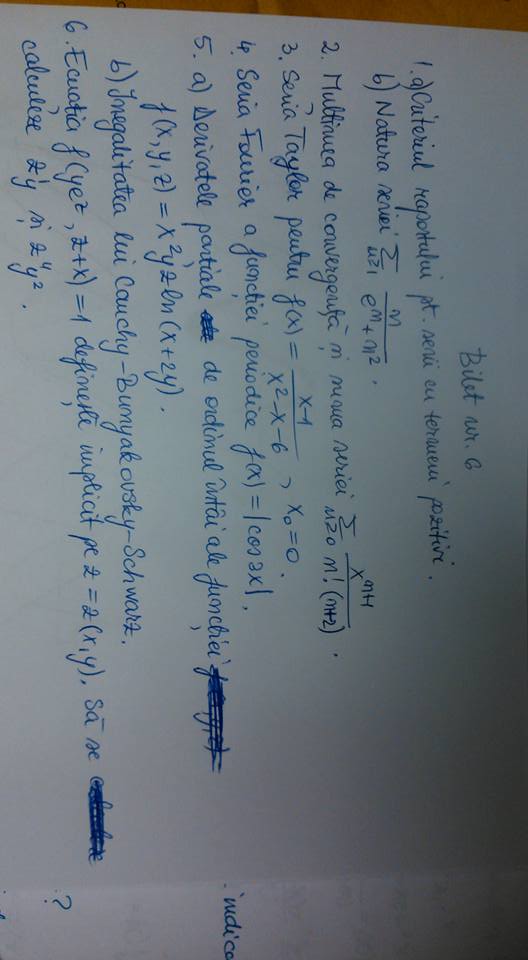 Bilet nr. 6
1. a) Criteriul raportului pt. serii cu termeni pozitivi.
b) Natura seriei ∑_{n≥1} n/(e^n + n^2).
2. Mulțimea de convergență și suma seriei ∑_{n≥0} x^{n+1}/(n!(n+2)).
3. Seria Taylor pentru f(x) = (x-1)/(x^2-x-6), x_0=0.
4. Seria Fourier a funcției periodice f(x) = |cos 2x|.
5. a) Derivatele parțiale de ordinul întâi ale funcției
f(x,y,z) = x^2yz ln(x+2y).
b) Inegalitatea lui Cauchy-Bunyakovsky-Schwarz.
6. Ecuația f(ye^z, z+x) = 1 definește implicit pe z = z(x,y). Să se
calculeze z'y și z''y^2.
. indica
?